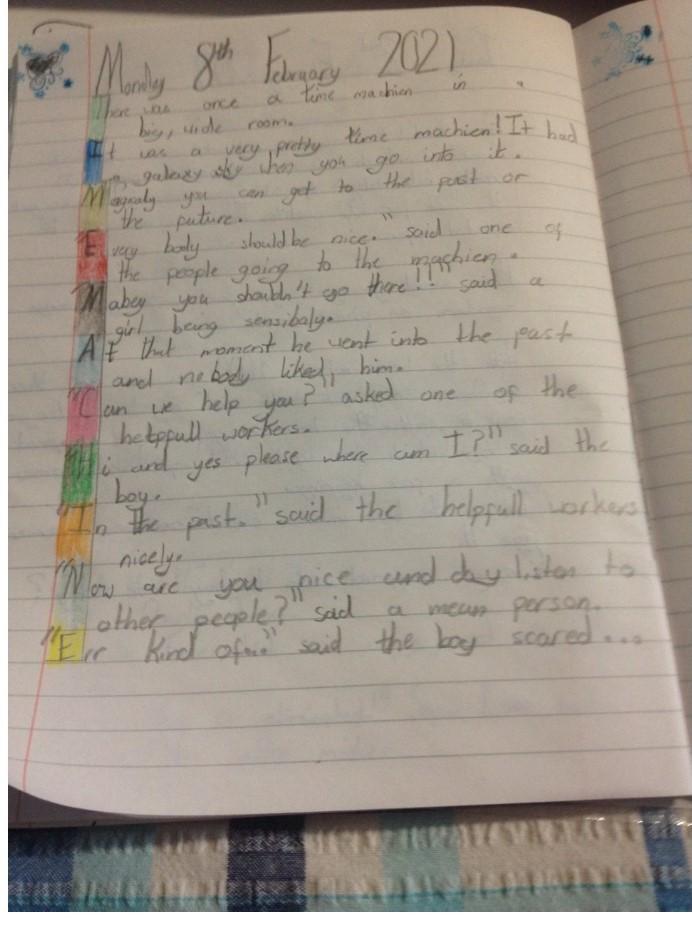 Monday 8th February 2021
There was once a time machien in a
big, wide room.
It was a very pretty time machien! It had
a galaxy sky when you go into it.
Magnaly you can get to the past or
the puture.
Every body should be nice." said one of
the people going to the machien.
Mabey you shouldn't go there!!" said a
girl being sensibaly.
At that moment he went into the past
and nobody liked him.
"Can we help you?" asked one of the
helpfull workers.
"Hi and yes please where am I?" said the
boy.
"In the past." said the helpfull workers
nicely.
"Now are you nice and day liston to
other people?" said a mean person.
"Err kind of..." said the boy scared...